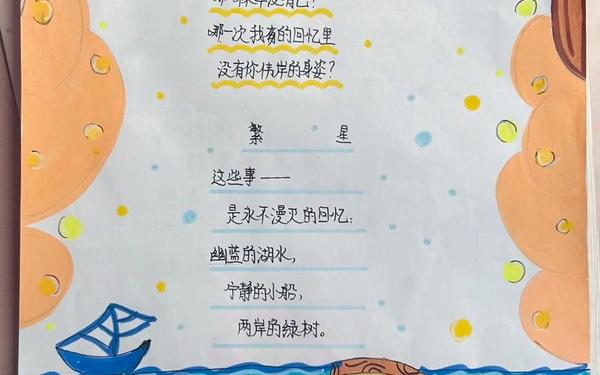 哪一次我真的回忆里
没有你伟岸的身姿？
繁 星
这些事——
是永不漫灭的回忆；
幽蓝的湖水，
宁静的小船，
两岸的绿树。